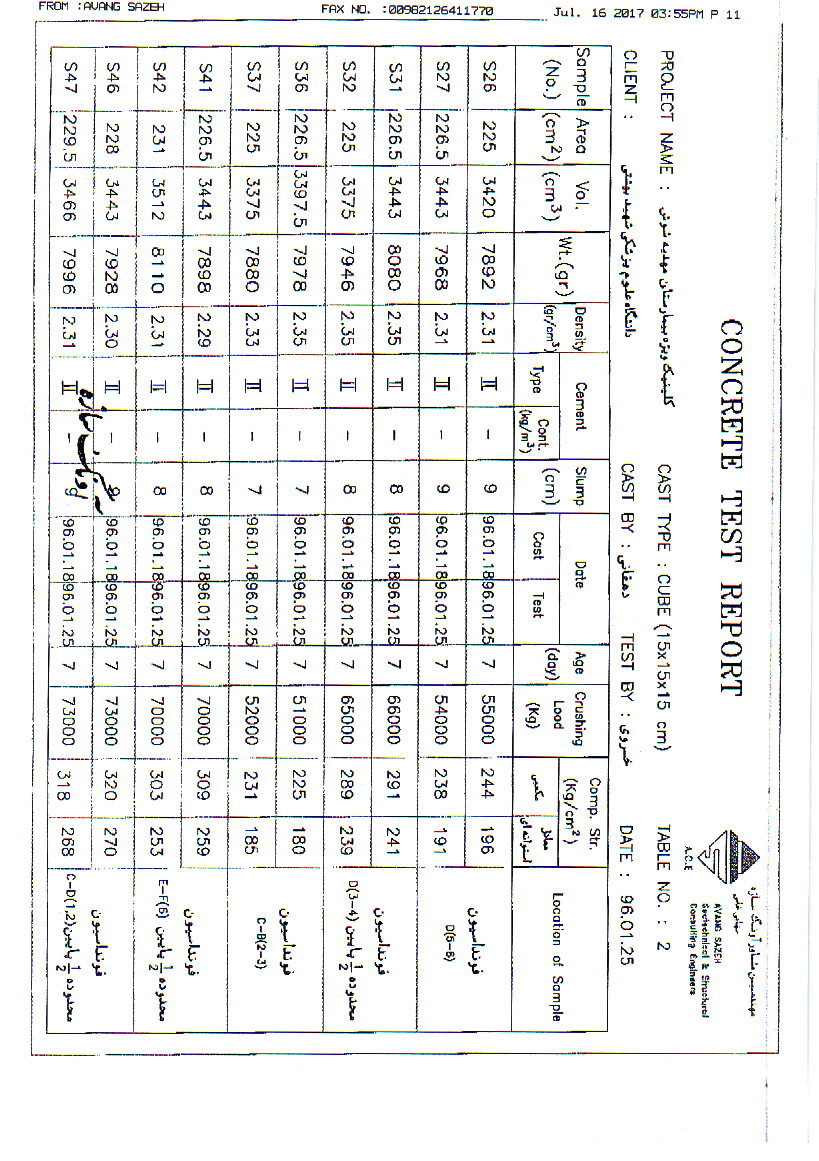 FROM :AVANG SAZEH FAX NO. :00982126411770 Jul. 16 2017 03:55PM P 11
CONCRETE TEST REPORT
مهندسین مشاور آونگ سازه
A.C.E
AVANG SAZEH
Geotechnical & Structural
Consulting Engineers
PROJECT NAME : کلینیک ویژه بیمارستان مهدیه شوش CAST TYPE : CUBE (15x15x15 cm) TABLE NO. : 2
CLIENT : دانشگاه علوم پزشکی شهید بهشتی CAST BY : دهقانی TEST BY : خسروی DATE : 96.01.25
Sample (No.) Area (cm2) Vol. (cm3) Wt.(gr) Density (gr/cm3) Cement Type Cont. (kg/m3) Slump (cm) Date Cast Test Age (day) Crushing Load (Kg) Comp. Str. (Kg/cm2) مکعبی معادل استوانه ای Location of Sample
S26 225 3420 7892 2.31 II - 9 96.01.18 96.01.25 7 55000 244 196
S27 225 3443 7968 2.31 II - 9 96.01.18 96.01.25 7 54000 238 191
فونداسیون
D(5-6)
S31 226.5 3443 8080 2.35 II - 8 96.01.18 96.01.25 7 66000 291 241
S32 225 3375 7946 2.35 II - 8 96.01.18 96.01.25 7 65000 289 239
فونداسیون
محدوده 1/2 پایین D(3-4)
S36 226.5 3397.5 7978 2.35 II - 7 96.01.18 96.01.25 7 51000 225 180
S37 225 3375 7880 2.33 II - 7 96.01.18 96.01.25 7 52000 231 185
فونداسیون
C-B(2-3)
S41 226.5 3443 7898 2.29 II - 8 96.01.18 96.01.25 7 70000 309 259
S42 231 3512 8110 2.31 II - 8 96.01.18 96.01.25 7 70000 303 253
فونداسیون
محدوده 1/2 پایین E-F(6)
S46 228 3443 7928 2.30 II - 9 96.01.18 96.01.25 7 73000 320 270
S47 229.5 3466 7996 2.31 II - 9 96.01.18 96.01.25 7 73000 318 268
فونداسیون
محدوده 1/2 پایین C-D(1,2)